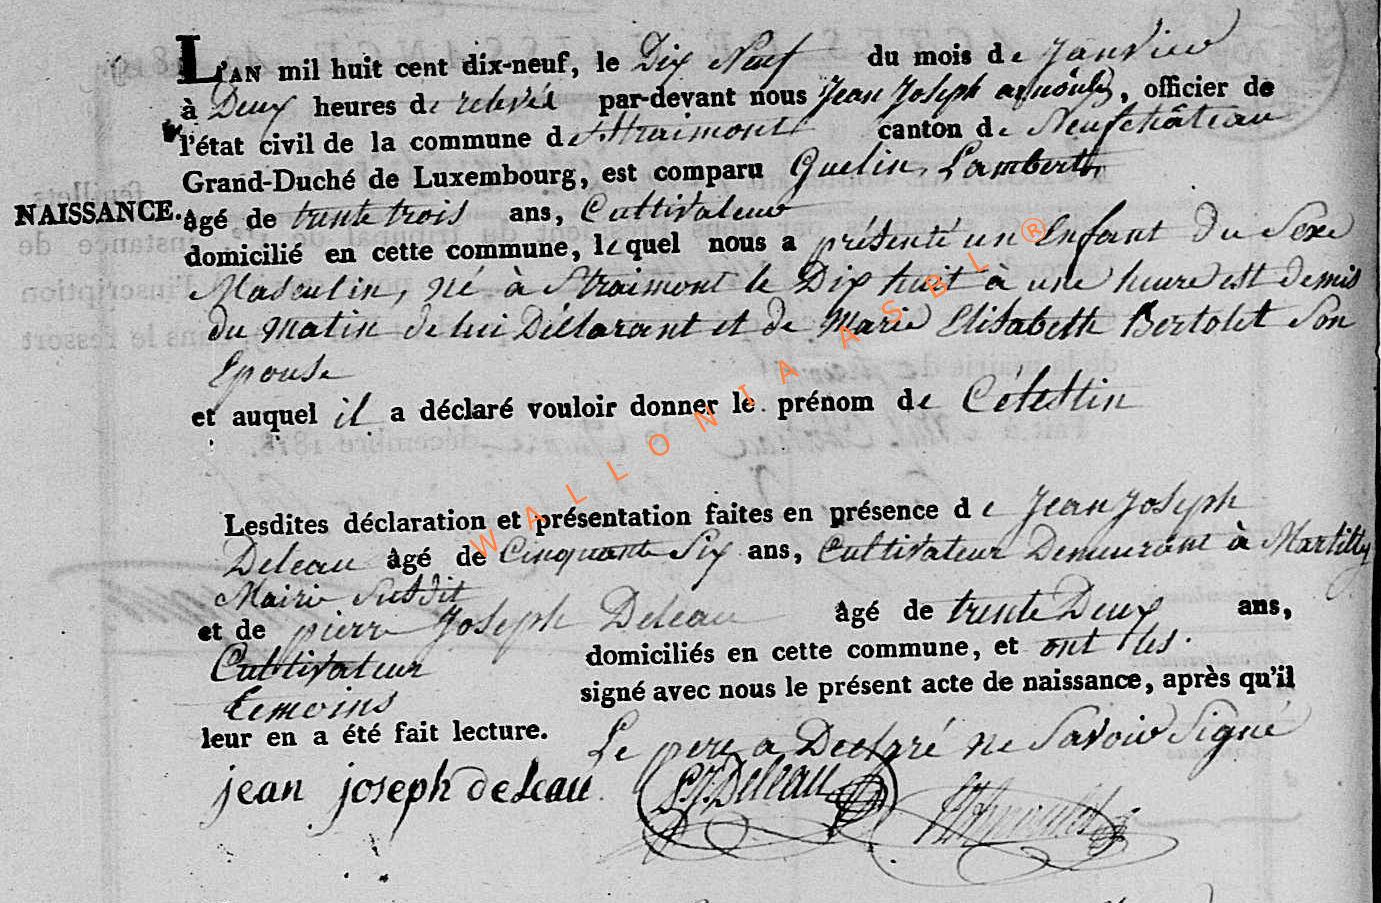 L'AN mil huit cent dix-neuf, le Dix Neuf du mois de Janvier
à Deux heures de relevée par-devant nous Jean Joseph arnould, officier de
l'état civil de la commune de Straimont canton de Neufchâteau
Grand-Duché de Luxembourg, est comparu Quelin, Lambert
NAISSANCE. âgé de trente trois ans, Cultivateur
domicilié en cette commune, lequel nous a présenté un Enfant Du Sexe
Masculin, né à Straimont le Dix huit à une heure est demis
du matin de lui Déclarant et de Marie Elisabeth Bertolet Son
Epouse
et auquel il a déclaré vouloir donner le prénom de Célestin
Lesdites déclaration et présentation faites en présence de Jean Joseph
Deleau âgé de Cinquante Six ans, Cultivateur Demeurant à Martilly
Mairie Susdit
et de pierre Joseph Deleau âgé de trente Deux ans,
Cultivateur domiciliés en cette commune, et ont les
temoins signé avec nous le présent acte de naissance, après qu'il
leur en a été fait lecture. Le pere a Declaré ne Savoir Signé
jean joseph deleau PJ Deleau
WALLONIA ASBL ®